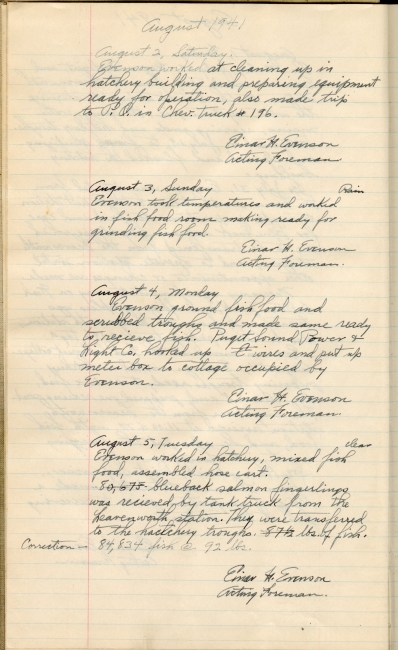 August 1941
August 2, Saturday.
Evenson worked at cleaning up in
hatchery building and preparing equipment
ready for operation, also made trip
to P.O. in Chev. truck # 196.
Einar H. Evenson
Acting Foreman.
August 3, Sunday Rain
Evenson took temperatures and worked
in fish food room making ready for
grinding fish food.
Einar H. Evenson
Acting Foreman.
August 4, Monday
Evenson ground fish food and
scrubbed troughs and made same ready
to recieve fish. Puget Sound Power &
Light Co. hooked up wires and put up
meter box to cottage occupied by
Evenson.
Einar H. Evenson
Acting Foreman.
August 5, Tuesday clear
Evenson worked in hatchery, mixed fish
food, assembled hose cart.
80,675 blueback salmon fingerlings
was recieved, by tank truck from the
Leavenworth station. They were transferred
to the hastchery troughs. 87½ lbs. of fish.
Correction - 84,834 fish @ 92 lbs.
Einar H. Evenson
Acting Foreman.